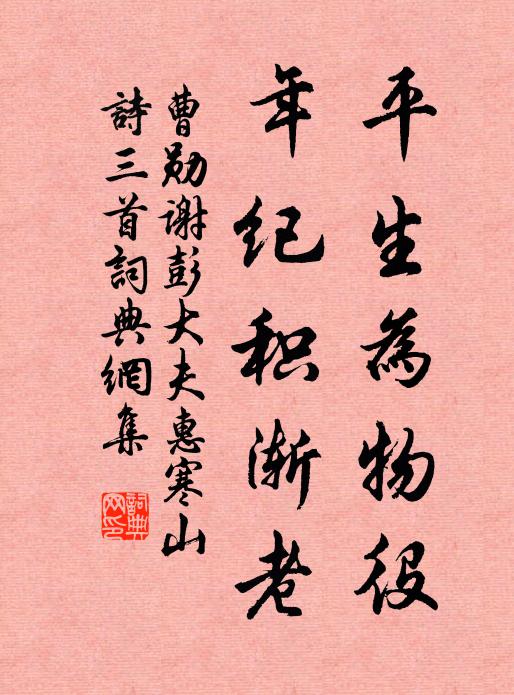 平生為物役
年纪积渐老
曹勋谢彭大夫惠寒山
詩三首詞典網集
詞典网印